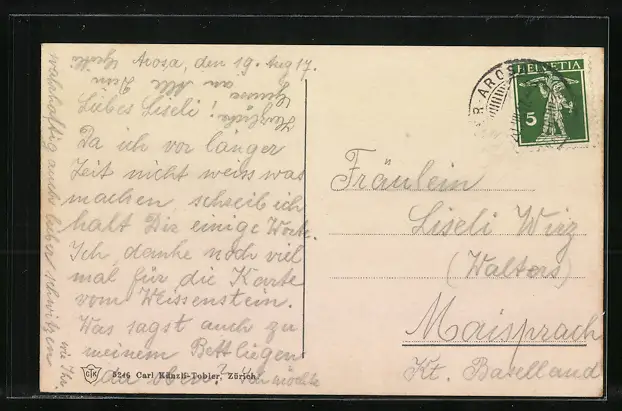 Arosa, den 19. Aug 17.
Liebes Liseli!
Da ich vor langer
Zeit nicht weiss was
machen, schreib ich
halt Dir einige Worte.
Ich danke noch viel
mal für die Karte
vom Weissenstein.
Was sagst auch zu
meinem Bettliegen
da oben? Ich möchte
wahrhaftig auch lieber schwitzen
wie Ihr.
Herzliche
Grüsse an Alle
Dein
5246 Carl Künzli-Tobler, Zürich.
CKT
HELVETIA
5
AROSA
Fräulein
Liseli Wirz
(Walters)
Maisprach
Kt. Baselland